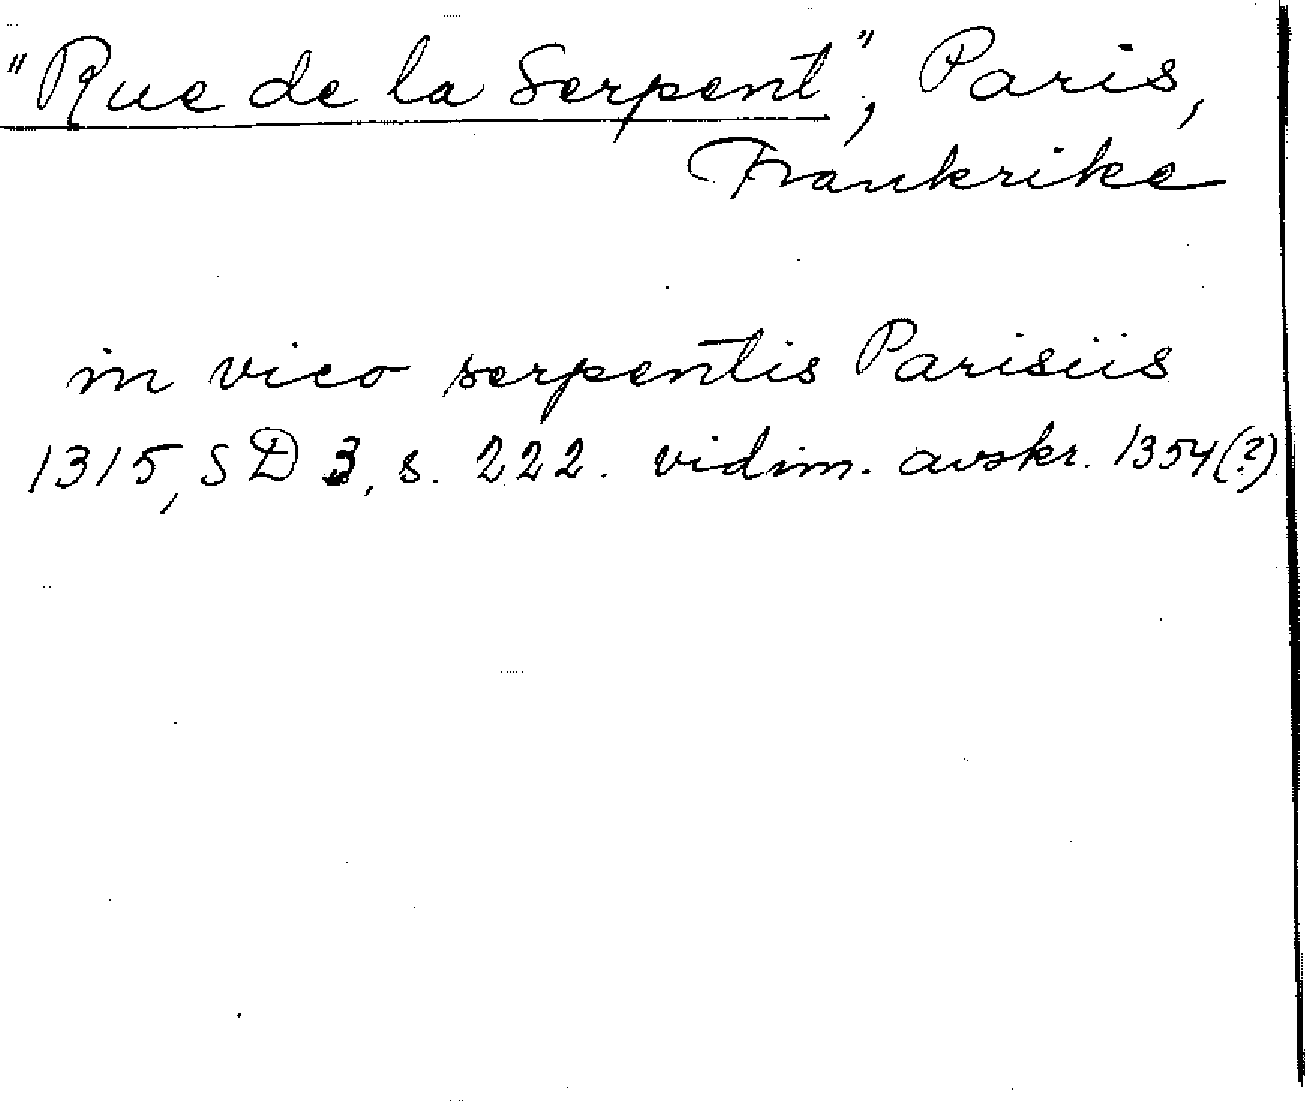 "Rue de la Serpent", Paris,
Frankrike
in vico serpentis Parisiis
1315, SD 3, s. 222. vidim. avskr. 1354(?)